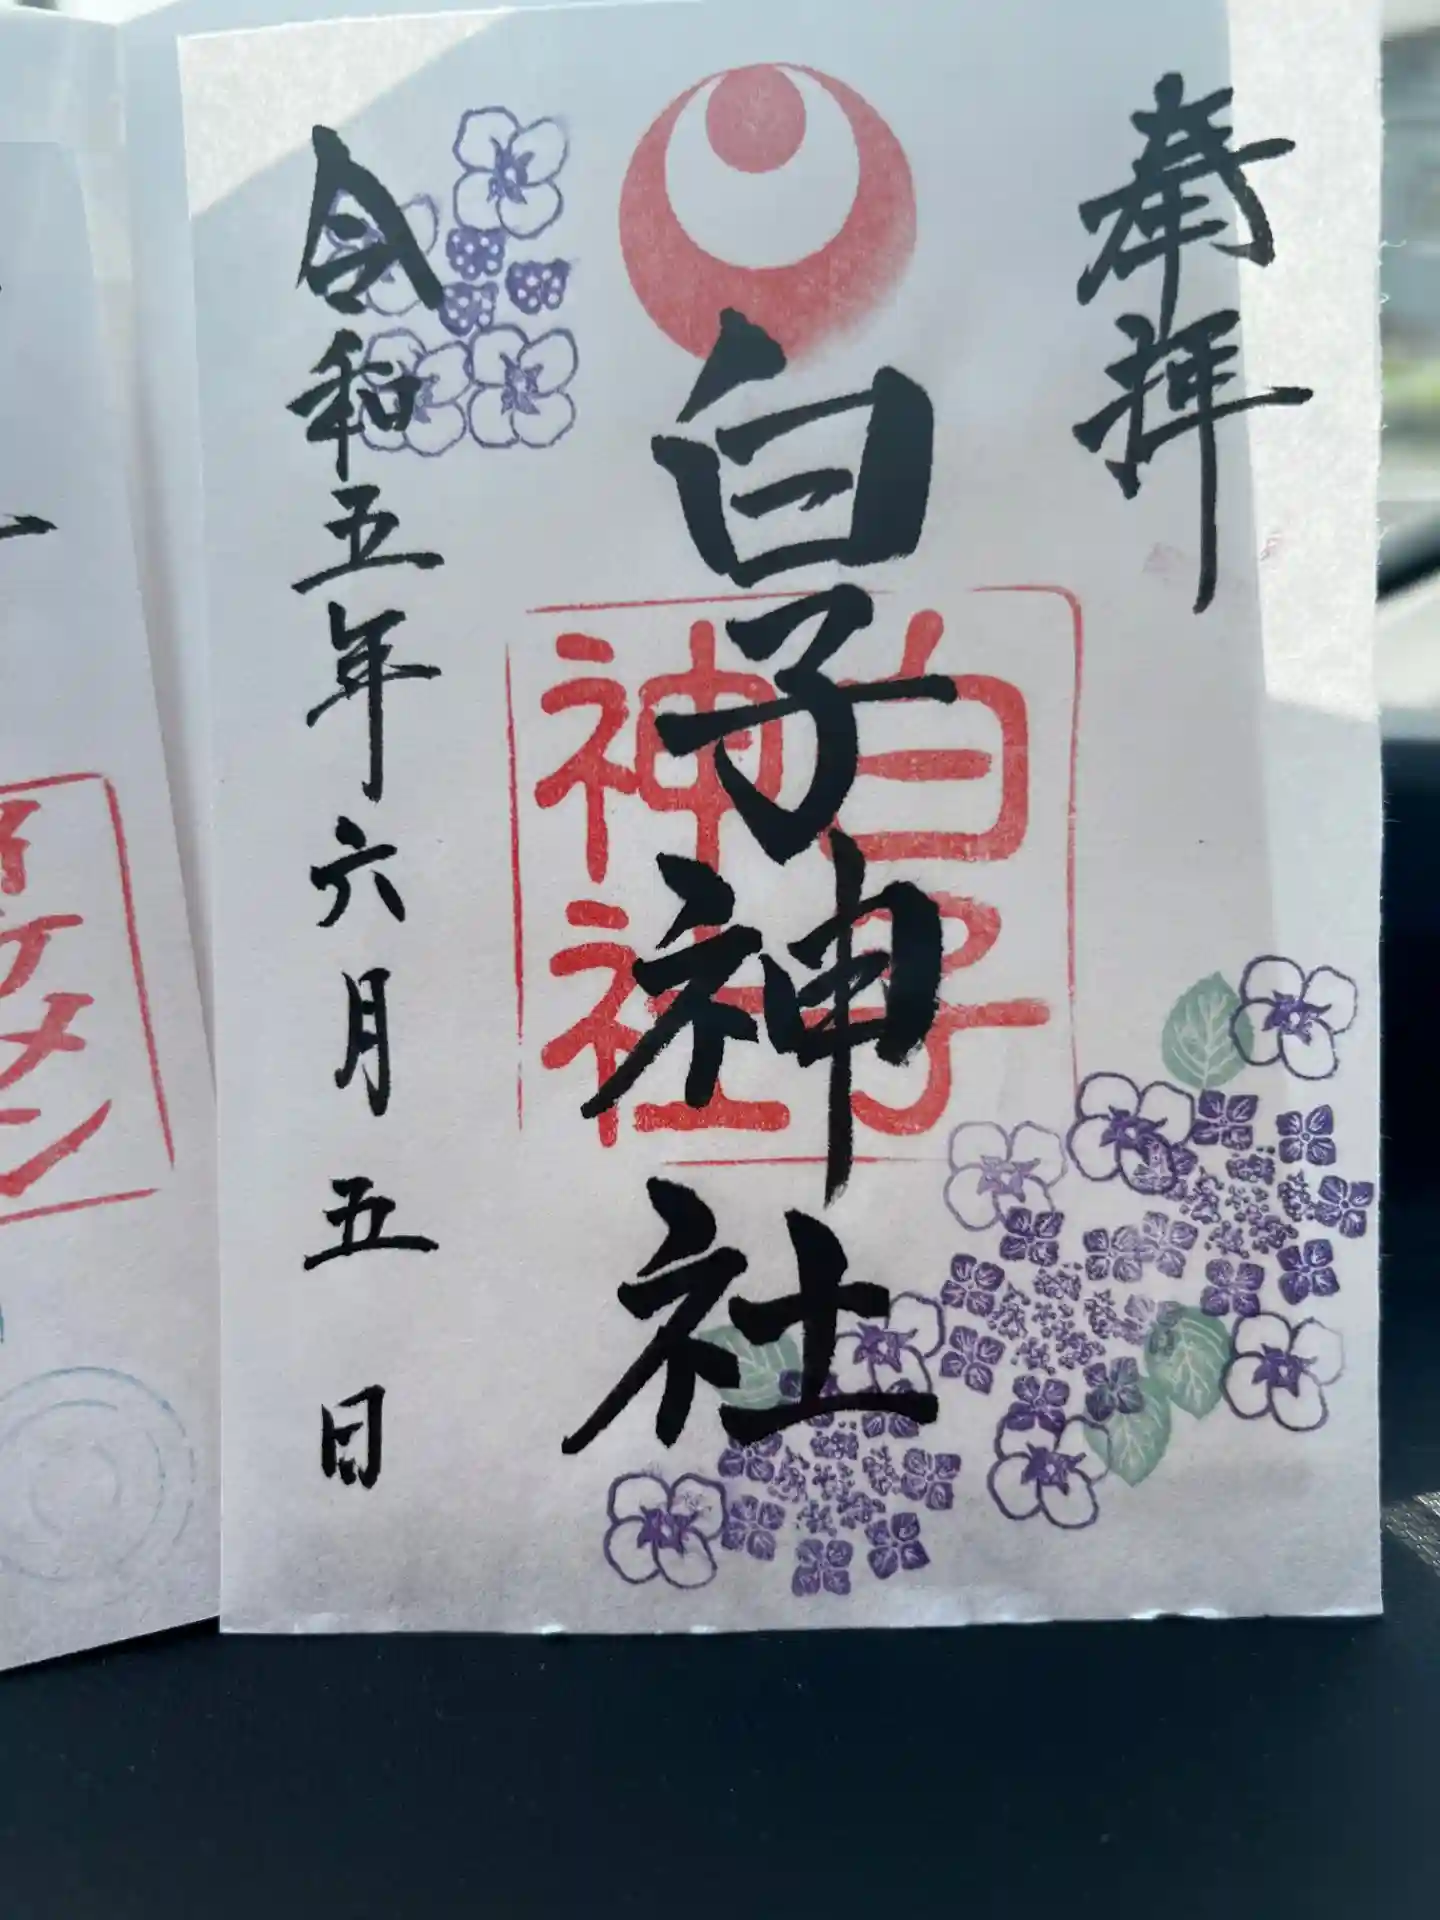 奉拝
白子神社
白子
神社
令和五年六月五日
イケメン